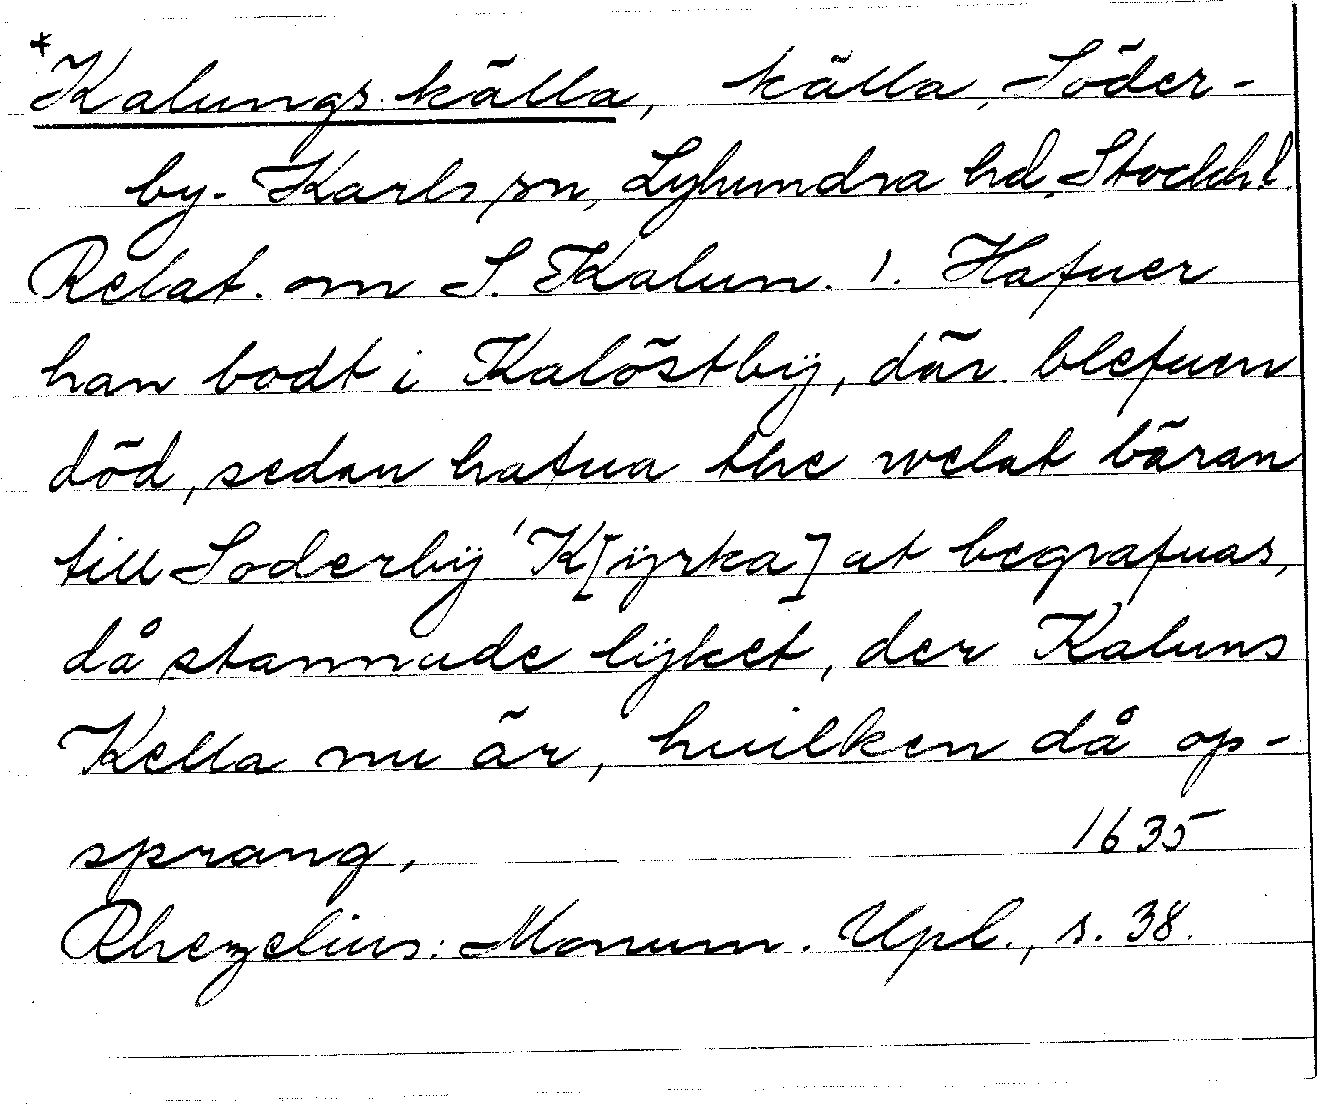 *Kalungs källa, källa, Söder-
by-Karls sn, Lyhundra hd, Stockh.l.
Relat. om S. Kalun. 1. Hafuer
han bodt i Kalöstbÿ, där blefuen
död, sedan hafua the welat bäran
till Soderbÿ K[ÿrka] at begrafuas,
då stannade lÿket, der Kaluns
Kella nu är, huilken då op-
sprang, 1635
Rhezelius: Monum. Upl., s. 38.